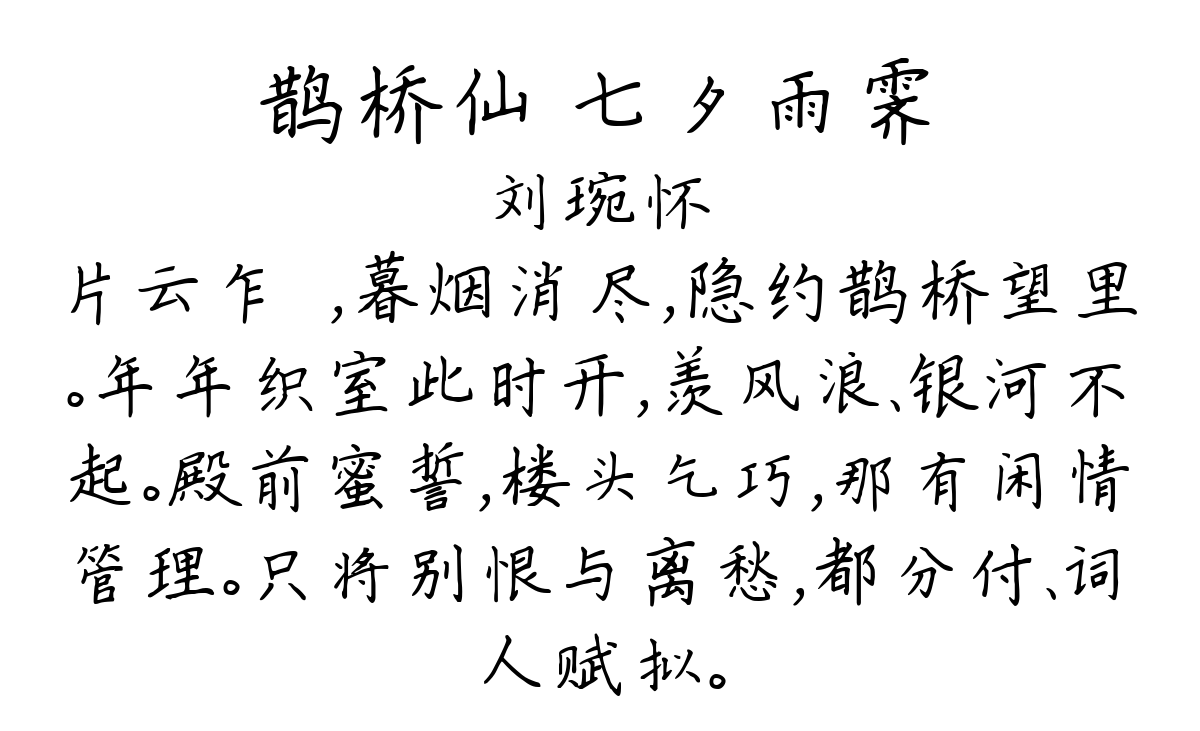 鹊桥仙 七夕雨霁
刘琬怀
片云乍 ,暮烟消尽,隐约鹊桥望里
。年年织室此时开,羡风浪、银河不
起。殿前蜜誓,楼头乞巧,那有闲情
管理。只将别恨与离愁,都分付、词
人赋拟。